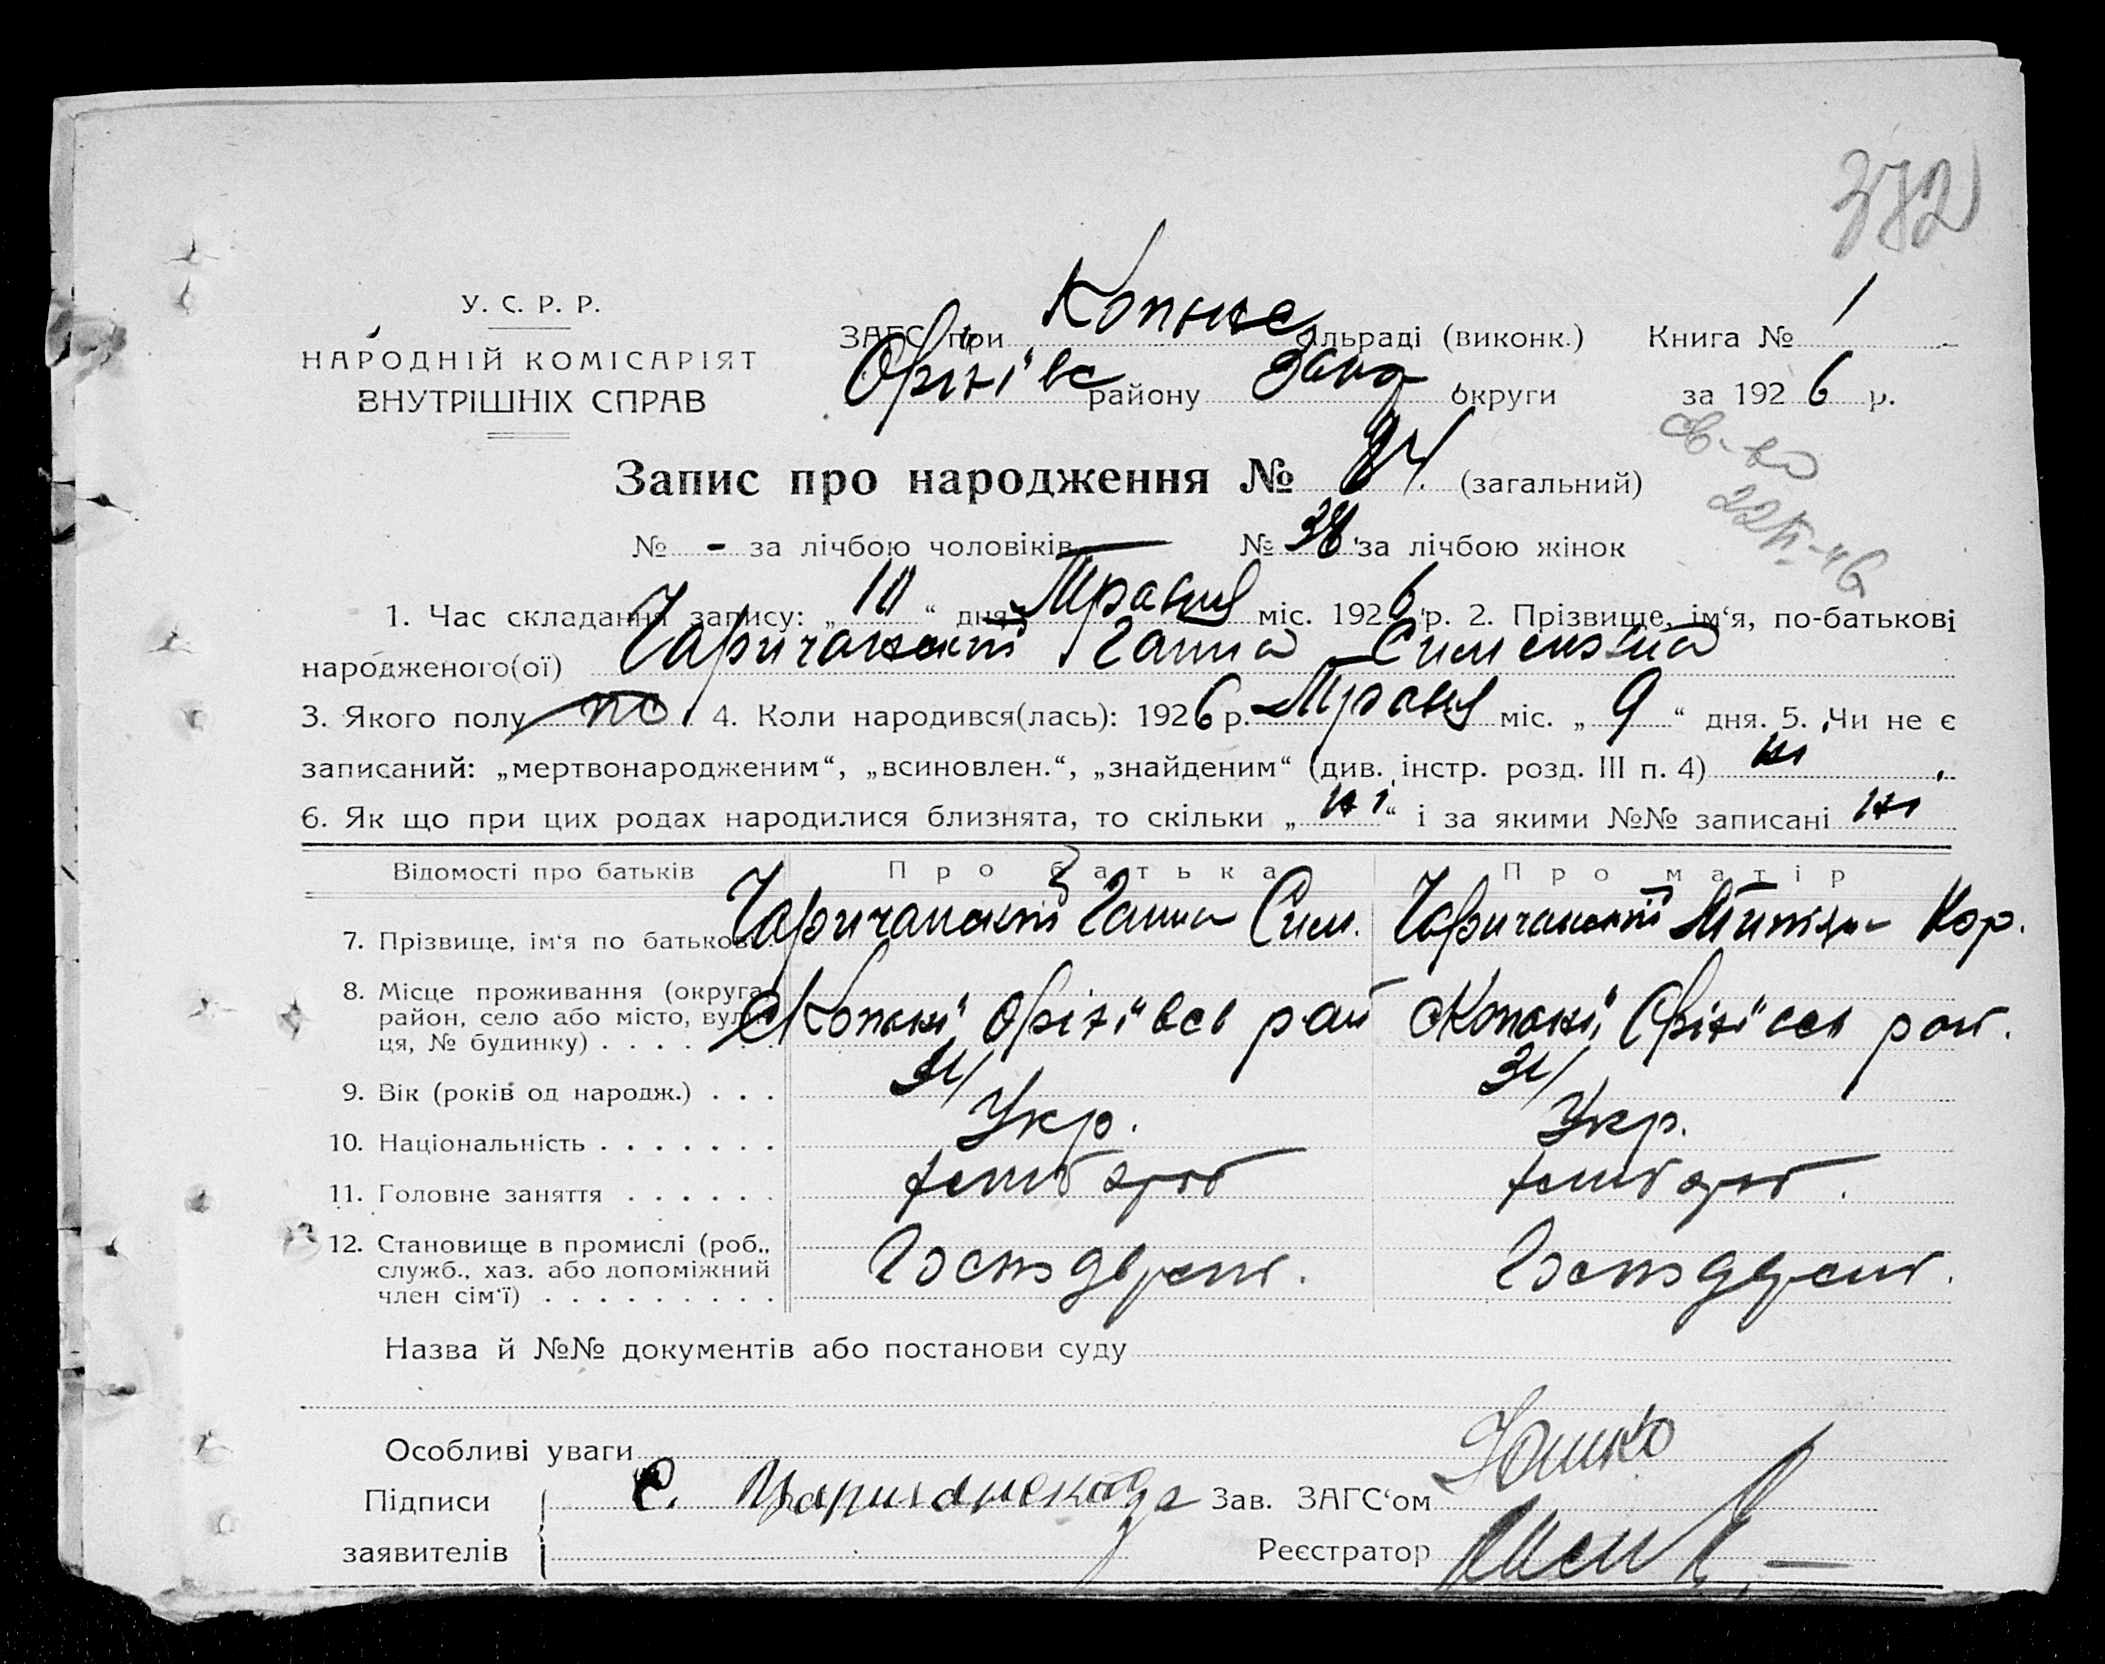 372
У. С. Р. Р.
НАРОДНІЙ КОМІСАРІЯТ
ВНУТРІШНІХ СПРАВ
ЗАГС при Копанс ільраді (виконк.) Книга № 1
Оріхівс району Запор округи за 1926 р.
Запис про народження № 84. (загальний)
св-во
22/V-46
№ - за лічбою чоловіків № 38 за лічбою жінок
1. Час складання запису: „10“ дня Травня міс. 1926 р. 2. Прізвище, ім‘я, по-батькові
народженого(ої) Ганна
3. Якого полу 4. Коли народився(лась): 1926 р. Травня міс. „9“ дня. 5. Чи не є
записаний: „мертвонародженим“, „всиновлен.“, „знайденим“ (див. інстр. розд. III п. 4) ні
6. Як що при цих родах народилися близнята, то скільки „ні“ і за якими №№ записані ні
Відомості про батьків Про батька Про матір
7. Прізвище, ім‘я по батькові Ганна Сим. Кор.
8. Місце проживання (округа,
район, село або місто, вули-
ця, № будинку) . . . . Копані Оріхівсь рай Копані, Оріхівсь рай.
9. Вік (років од народж.) . . .
10. Національність . . . . . . . Укр. Укр.
11. Головне заняття . . . . . .
12. Становище в промислі (роб.,
служб., хаз. або допоміжний
член сім‘ї) . . . . . . . . .
Назва й №№ документів або постанови суду
Особливі уваги
Підписи С. Зав. ЗАГС‘ом
заявителів Реєстратор